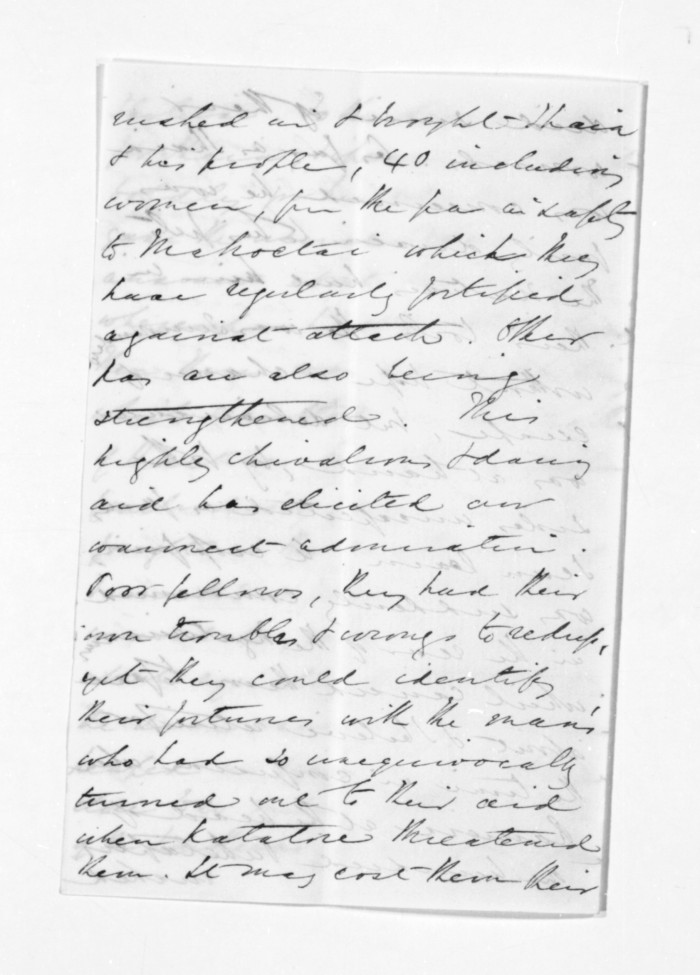 rushed in & brought Ihaia
& his people, 40 including
women, fm the pa in safety
to Mahoetai which they
have regularly fortified
against attack. Other
pas are also being
strengthened. This
highly chivalrous & daring
aid has elicited our
warmest admiration.
Poor fellows, they had their
own troubles & wrongs to redress,
yet they could identify
their fortunes with the man's
who had so unequivocally
turned out to their aid
when Katatore threatened
them. It may cost them their